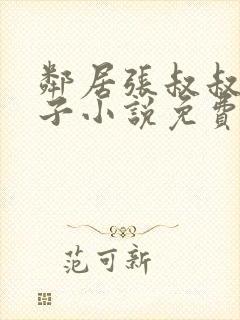 鄰居張叔叔
子小說免費
范可新